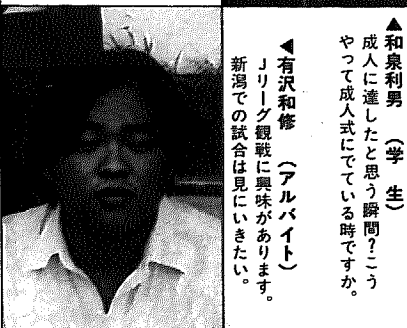 ▲和泉利男　(学　生)
成人に達したと思う瞬間?こう
やって成人式にでている時ですか。
◀有沢和修　(アルバイト)
Jリーグ観戦に興味があります。
新潟での試合は見にいきたい。